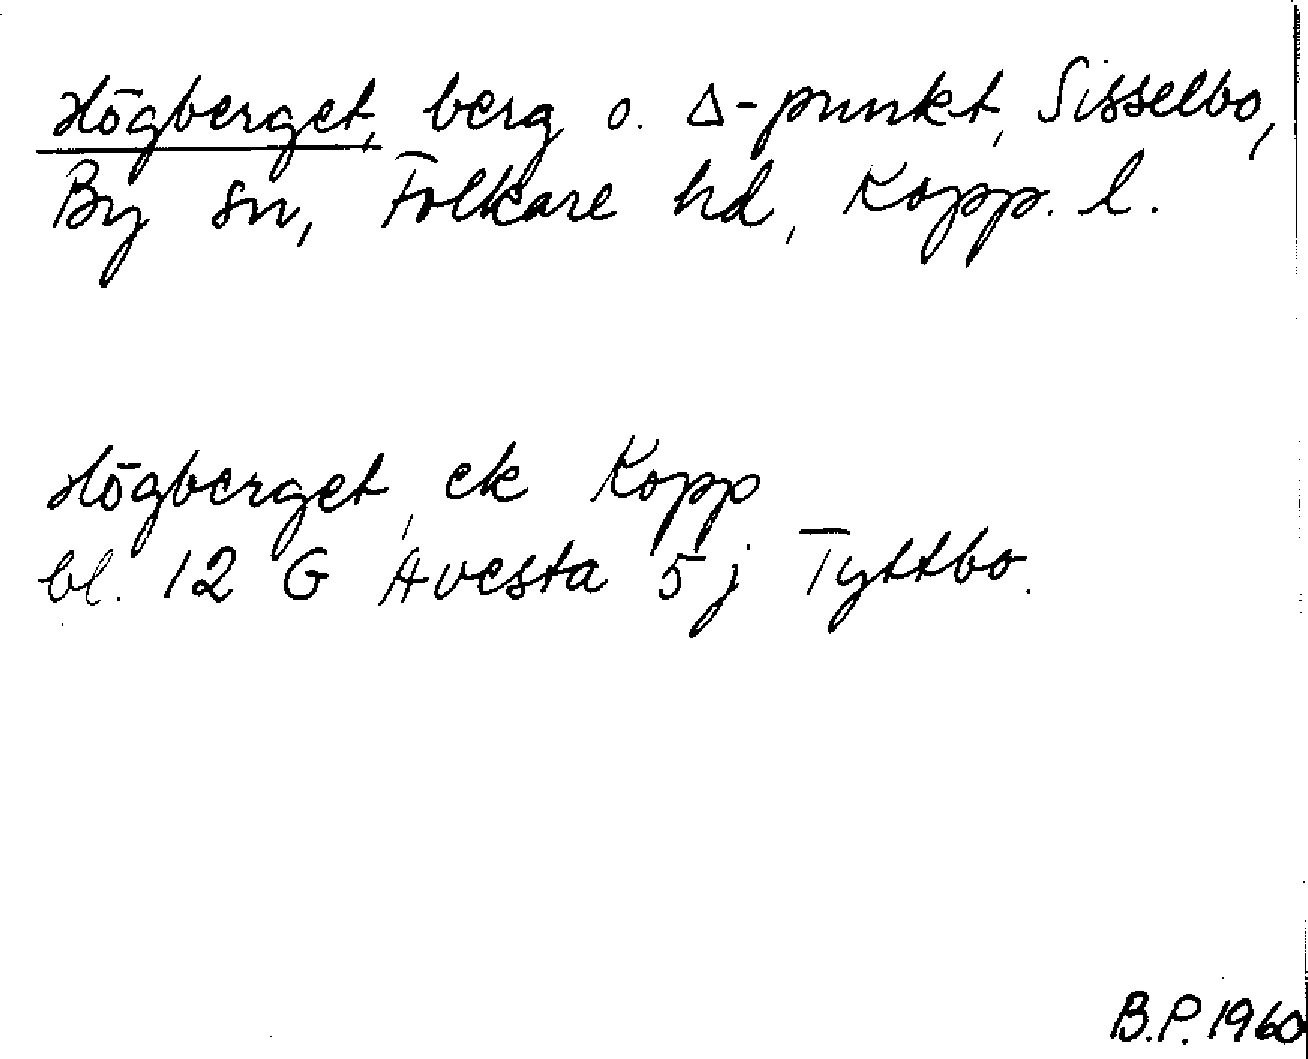 Högberget, berg o. Δ-punkt, Sisselbo,
By sn, Folkare hd, Kopp. l.
Högberget, ek Kopp
bl. 12 G Avesta 5j Tyttbo.
B.P. 1960